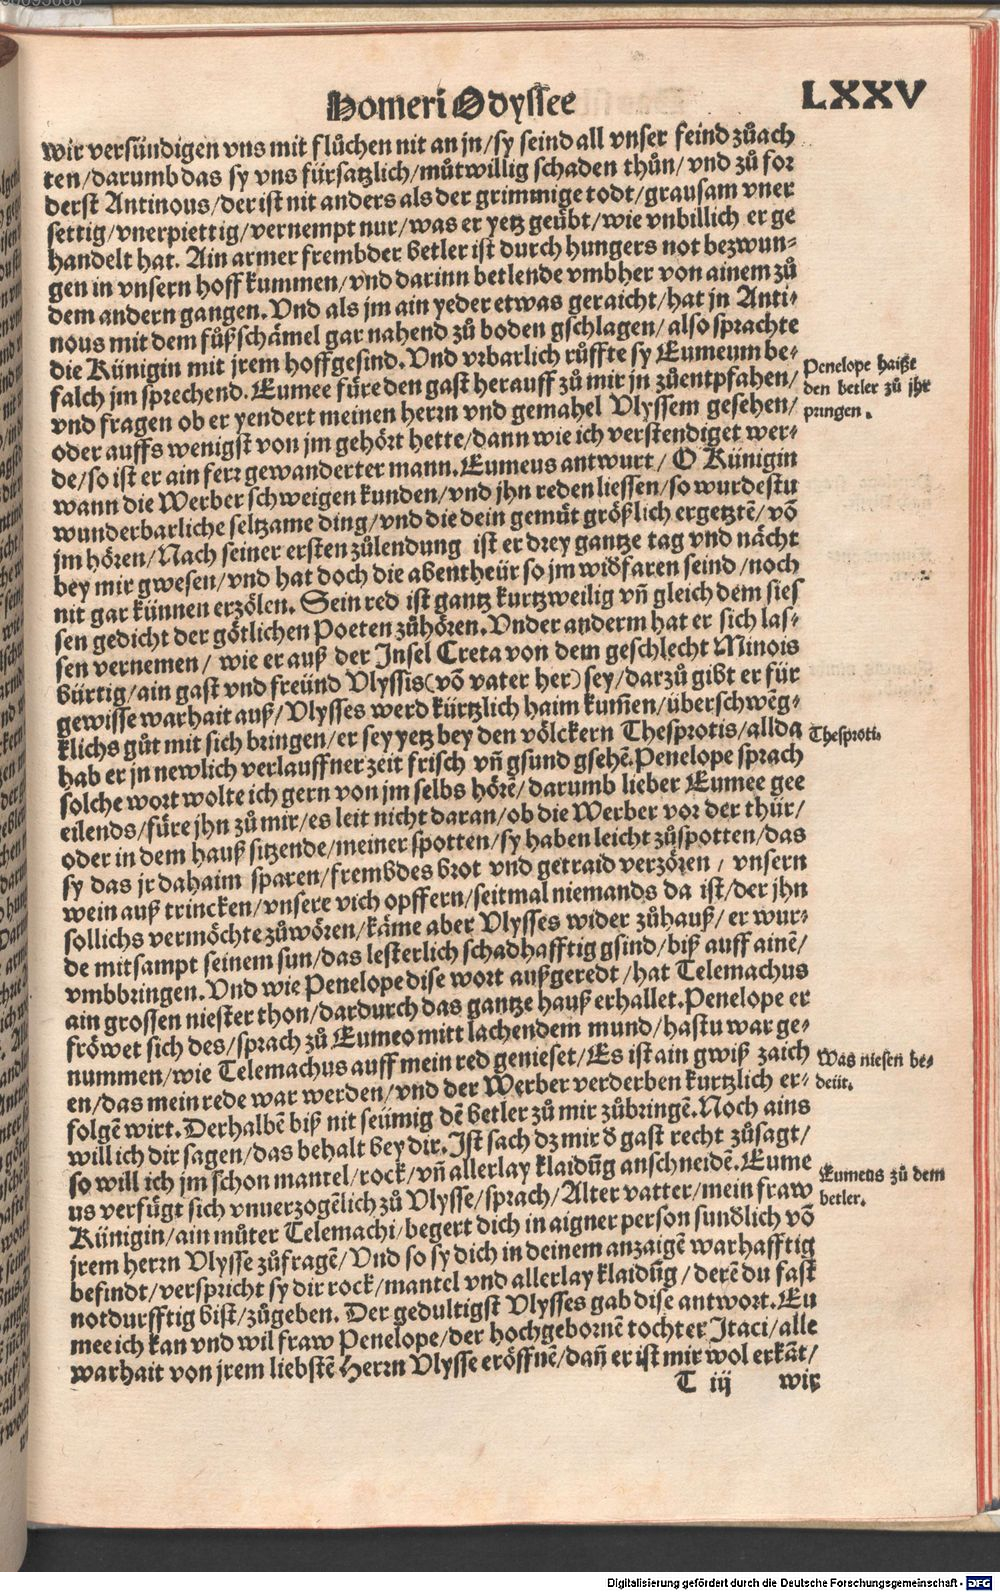 Homeri Odyssee
LXXV
wir versündigen vns mit flůchen nit an jn/sy seind all vnser feind zůach
ten/darumb das sy vns fürsatzlich/můtwillig schaden thůn/vnd zů for
derst Antinous/der ist nit anders als der grimmige todt/grausam vner
settig/vnerpiettig/vernempt nur/was er yetz geübt/wie vnbillich er ge
handelt hat. Ain armer frembder betler ist durch hungers not bezwun-
gen in vnsern hoff kummen/vnd darinn betlende vmbher von ainem zů
dem andern gangen. Vnd als jm ain yeder etwas geraicht/hat jn Anti-
nous mit dem fůßschämel gar nahend zů boden gschlagen/also sprachte
die Künigin mit jrem hoffgesind. Vnd vrbarlich růffte sy Eumeum be-
falch jm sprechend. Eumee füre den gast herauff zů mir jn zůentpfahen/
Penelope haißt
den betler zů jhr
pringen.
vnd fragen ob er yendert meinen herrn vnd gemahel Vlyssem gesehen/
oder auffs wenigst von jm gehört hette/dann wie ich verstendiget wer-
de/so ist er ain ferr gewanderter mann. Eumeus antwurt/ O Künigin
wann die Werber schweigen kunden/vnd jhn reden liessen/so wurdestu
wunderbarliche seltzame ding/vnd die dein gemüt größlich ergetztẽ/võ
jm hören/Nach seiner ersten zůlendung ist er drey gantze tag vnd nächt
bey mir gwesen/vnd hat doch die abentheür so jm widfaren seind/noch
nit gar künnen erzölen. Sein red ist gantz kurtzweilig vñ gleich dem sies
sen gedicht der götlichen Poeten zůhören. Vnder anderm hat er sich las-
sen vernemen/ wie er auß der Insel Creta von dem geschlecht Minois
bürtig/ain gast vnd freünd Vlyssis(võ vater her)sey/darzů gibt er für
gewisse warhait auß/Vlysses werd kürtzlich haim kum̃en/überschwẽg-
klichs gůt mit sich bringen/er sey yetz bey den völckern Thesprotis/allda
Thesproti.
hab er jn newlich verlauffner zeit frisch vñ gsund gsehẽ. Penelope sprach
solche wort wolte ich gern von jm selbs hörẽ/darumb lieber Eumee gee
eilends/füre jhn zů mir/es leit nicht daran/ob die Werber vor der thür/
oder in dem hauß sitzende/meiner spotten/sy haben leicht zůspotten/das
sy das jr dahaim sparen/frembdes brot vnd getraid verzören/ vnsern
wein auß trincken/vnsere vich opffern/seitmal niemands da ist/der jhn
sollichs vermöchte zůwören/käme aber Vlysses wider zůhauß/er wur-
de mitsampt seinem sun/das lesterlich schadhafftig gsind/biß auff ainẽ/
vmbbringen. Vnd wie Penelope dise wort außgeredt/hat Telemachus
ain grossen niester thon/dardurch das gantze hauß erhallet. Penelope er
fröwet sich des/sprach zů Eumeo mitt lachendem mund/hastu war ge-
nummen/wie Telemachus auff mein red genieset/Es ist ain gwiß zaich
Was niesen be-
deüt.
en/das mein rede war werden/vnd der Werber verderben kurtzlich er-
folgẽ wirt. Derhalbẽ biß nit seümig dẽ betler zů mir zůbringẽ. Noch ains
will ich dir sagen/das behalt bey dir. Ist sach dz mir d gast recht zůsagt/
so will ich jm schon mantel/rock/vñ allerlay klaidũg anschneidẽ. Eume
Eumeus zů dem
betler.
us verfügt sich vnuerzogẽlich zů Vlysse/sprach/Alter vatter/mein fraw
Künigin/ain můter Telemachi/begert dich in aigner person sundlich võ
jrem herrn Vlysse zůfragẽ/Vnd so sy dich in deinem anzaigẽ warhafftig
befindt/verspricht sy dir rock/mantel vnd allerlay klaidũg/derẽ du fast
notdurfftig bist/zůgeben. Der gedultigst Vlysses gab dise antwort. Eu
mee ich kan vnd wil fraw Penelope/der hochgebornẽ tochter Itaci/alle
warhait von jrem liebstẽ Herrn Vlysse eröffnẽ/dañ er ist mir wol erkãt/
T iij
wir
Digitalisierung gefördert durch die Deutsche Forschungsgemeinschaft - DFG